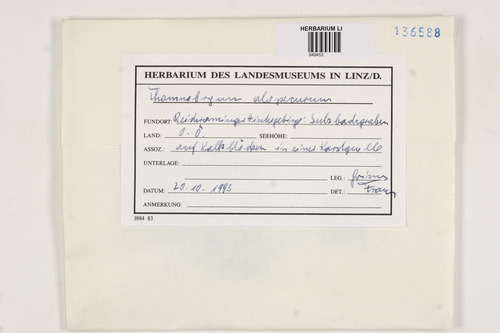 HERBARIUM LI
949453
136588
HERBARIUM DES LANDESMUSEUMS IN LINZ/D.
Thamnobryum alopecurum
FUNDORT: Reichraminger Hintergebirge: Sulzbachgraben
LAND: O.Ö. SEEHÖHE:
ASSOZ.: auf Kalkblöcken in einer Karstquelle
UNTERLAGE:
LEG.: Grims
DATUM: 20.10.1993 DET.: Franz
ANMERKUNG:
I884 83